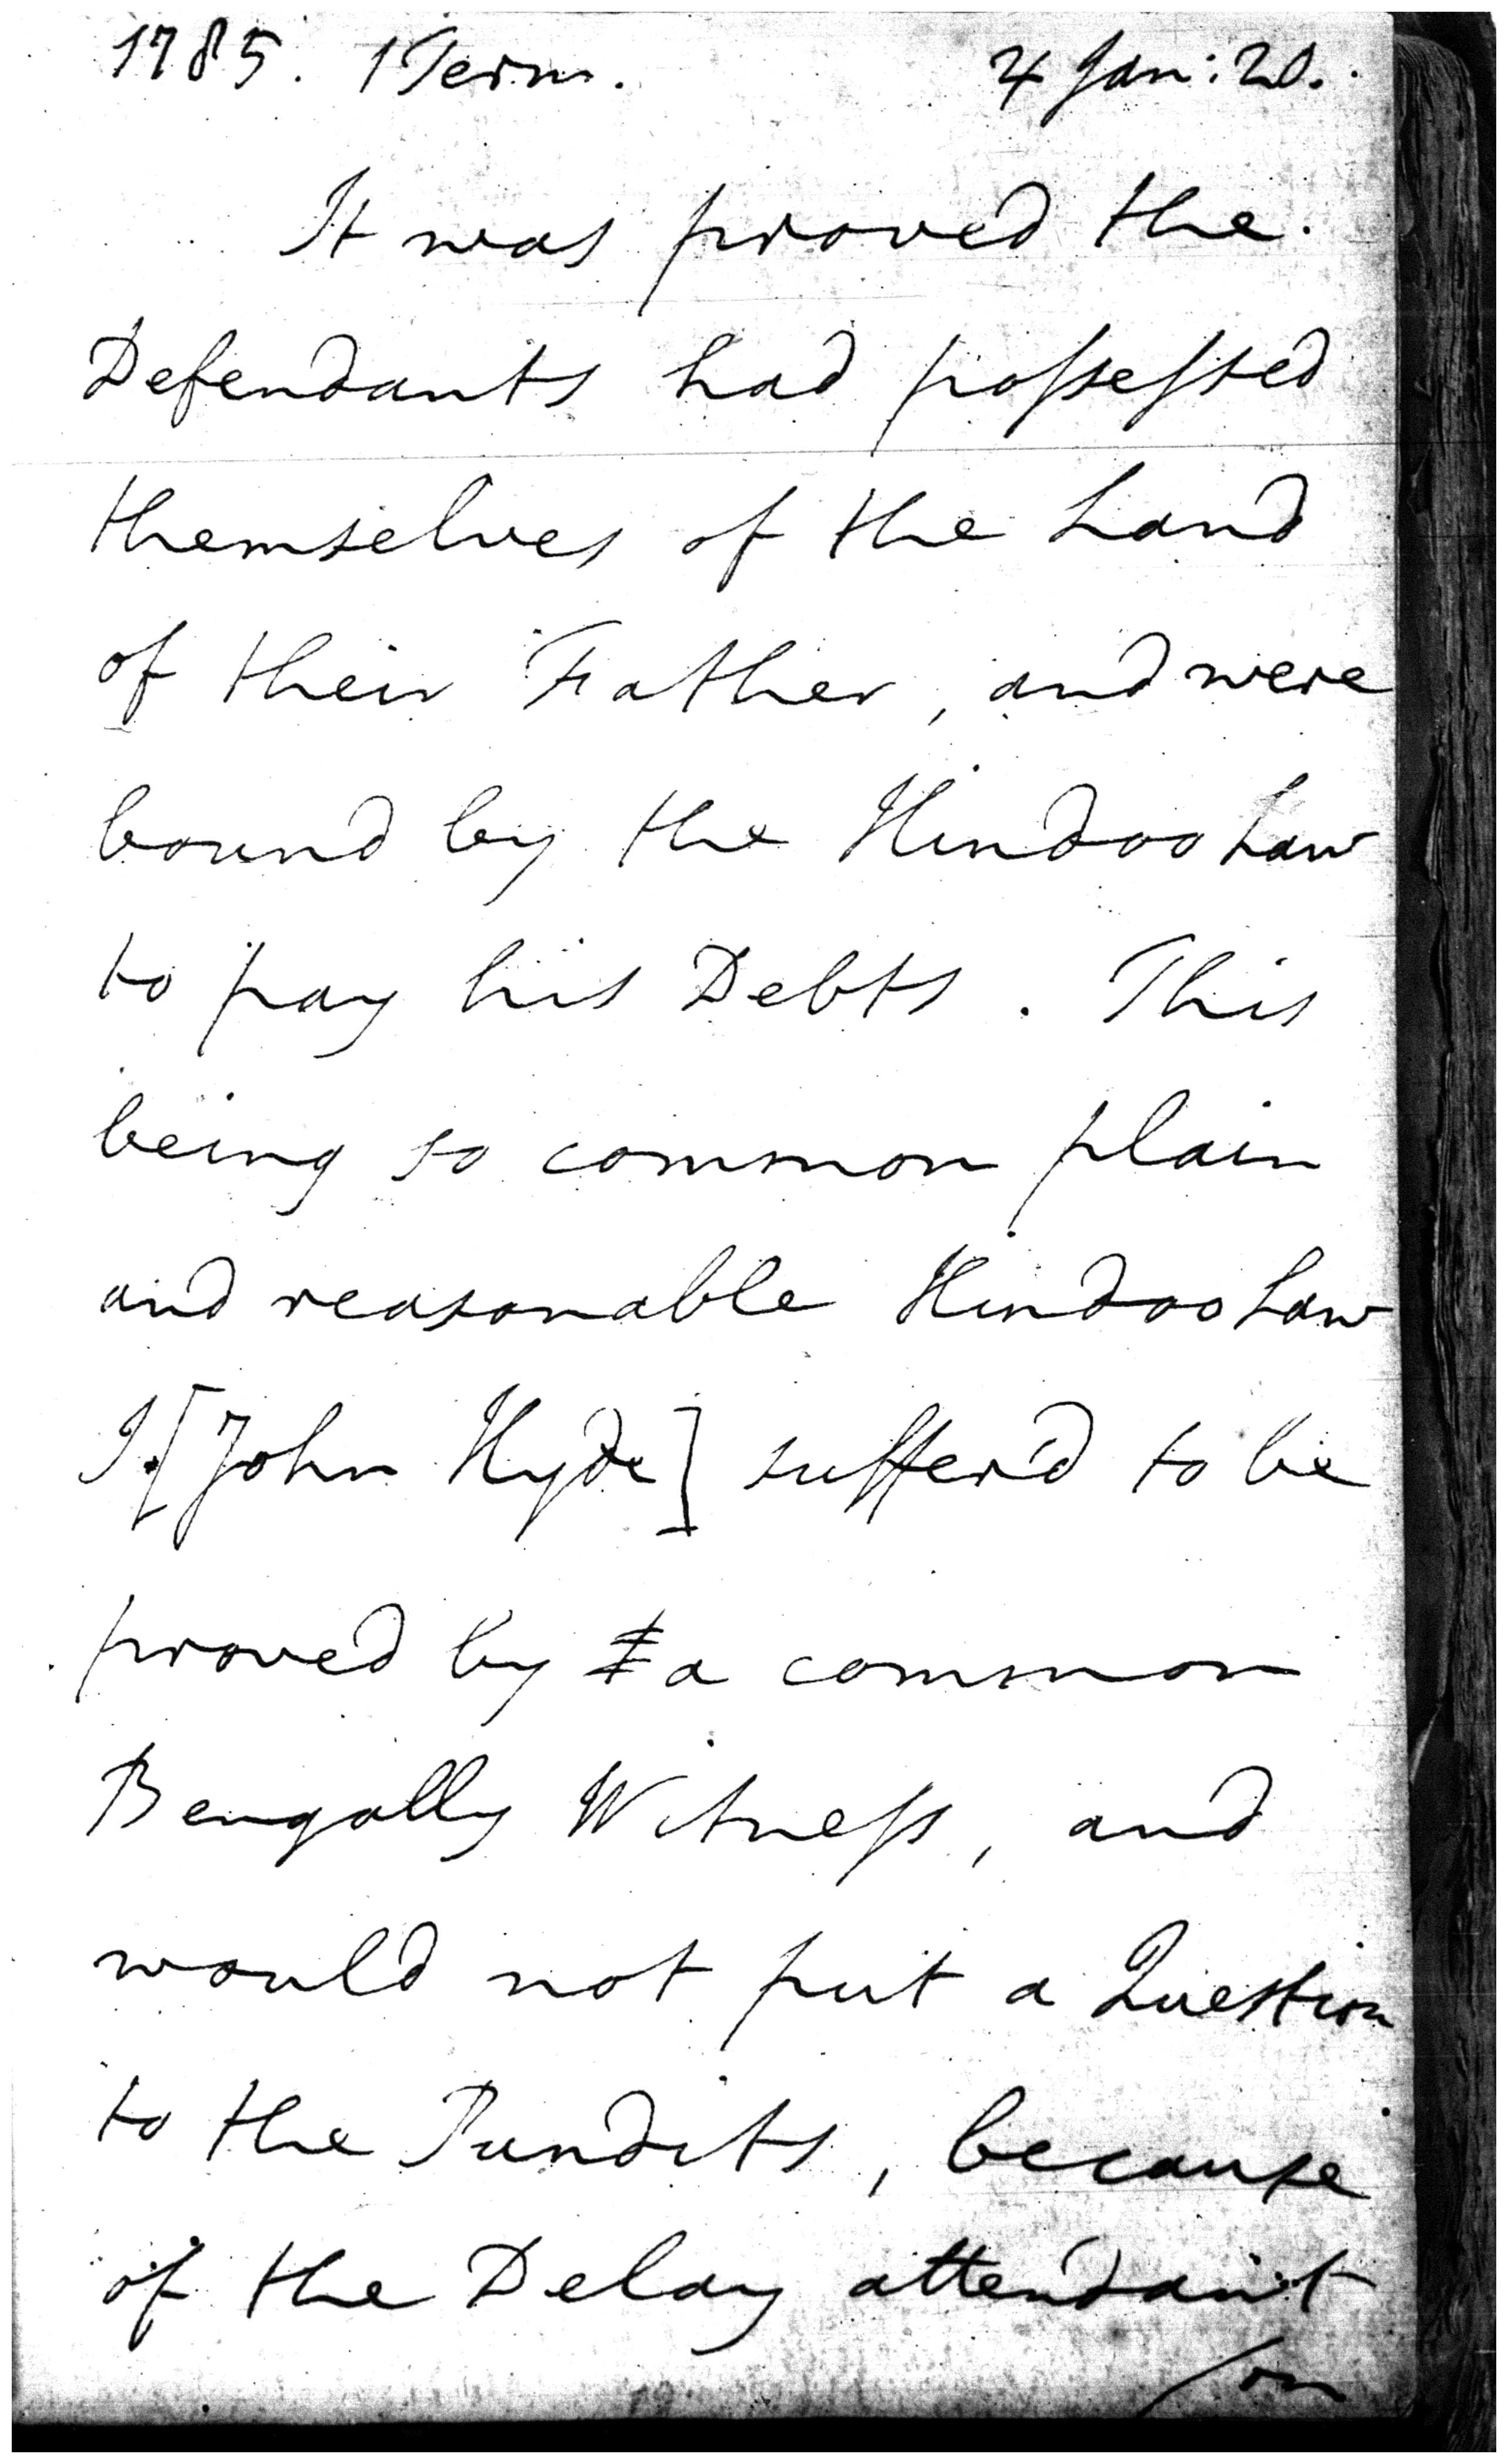 1785. 1 Term. 4 Jan: 20.
It was proved the
Defendants had possessed
themselves of the Land
of their Father, and were
bound by the Hindoo Law
to pay his Debts. This
being so common plain
and reasonable Hindoo Law
I [John Hyde] suffer'd to be
proved by a common
Bengally Witness, and
would not put a Question
to the Pundits, because
of the Delay attendant
/on